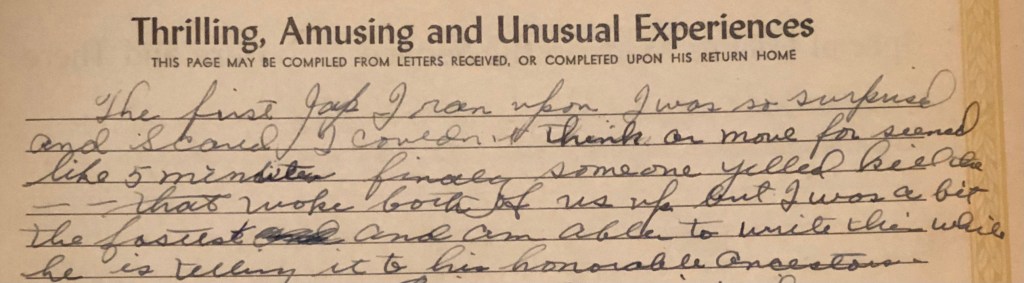 Thrilling, Amusing and Unusual Experiences
THIS PAGE MAY BE COMPILED FROM LETTERS RECEIVED, OR COMPLETED UPON HIS RETURN HOME
The first Jap I ran upon I was so surprised
and Scared I couldn't think or move for seemed
like 5 minutes finaly someone yelled kill the
— — that woke both of us up but I was a bit
the fastest and am able to write this while
he is telling it to his honorable ancestors